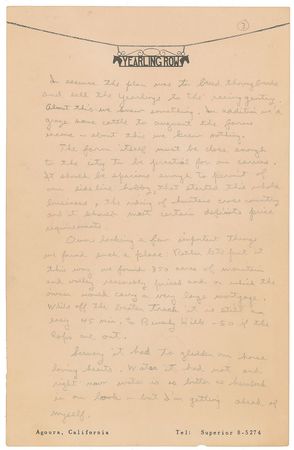 (2)
YEARLING ROW
In essence the plan was to breed thoroughbreds
and sell the yearlings to the racing gentry.
About this we knew something. In addition we'd
graze some cattle to augment the farms
income – about this we knew nothing.
The farm itself must be close enough
to the city to be practical for our careers.
It should be spacious enough to permit of
our side line hobby, that started this whole
business, the riding of hunters cross country
and it should meet certain definite price
requirements.
Over looking a few important things
we found such a place.
this way we found 350 acres of mountain
and valley reasonably priced and on which the
owner would carry a very large mortgage.
While off the beaten track it is still an
easy 45 min. to Beverly Hills – 50 if the
cops are out.
Scenery it had to gladden our horse
loving hearts. Water it had not and
right now water is as bitter as hemlock
in our book – but I'm getting ahead of
myself.
Agoura, California Tel: Superior 8-5274